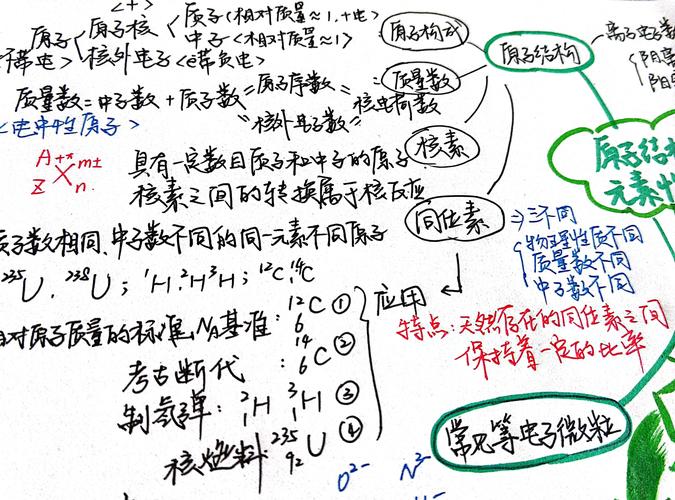 <+>
原子
原子核
质子(相对质量≈1,+电)
中子<相对质量≈1>
核外电子<e带负电>
原子构成
原子结构
离子电子数
质量数=中子数+质子数=原子序数=核电荷数
"核外电子数"
质量数
<电中性原子>
A +x m±
Z X n
具有一定数目质子和中子的原子
核素
核素之间的转换属于核反应
质子数相同、中子数不同的同一元素不同原子
同位素
⇒三不同
物理性质不同
质量数不同
中子数不同
²³⁵U、²³⁸U; ¹H ²H ³H; ¹²C ¹⁴C
应用
特点:天然存在的同位素之间
保持着一定的比率
相对原子质量的标准,NA基准: ¹²₆C ①
考古断代: ¹⁴₆C ②
制氢弹: ²₁H ³₁H ③
核燃料 ²³⁵₉₂U ④
常见等电子微粒
O²⁻ N³⁻
原子结构
元素性